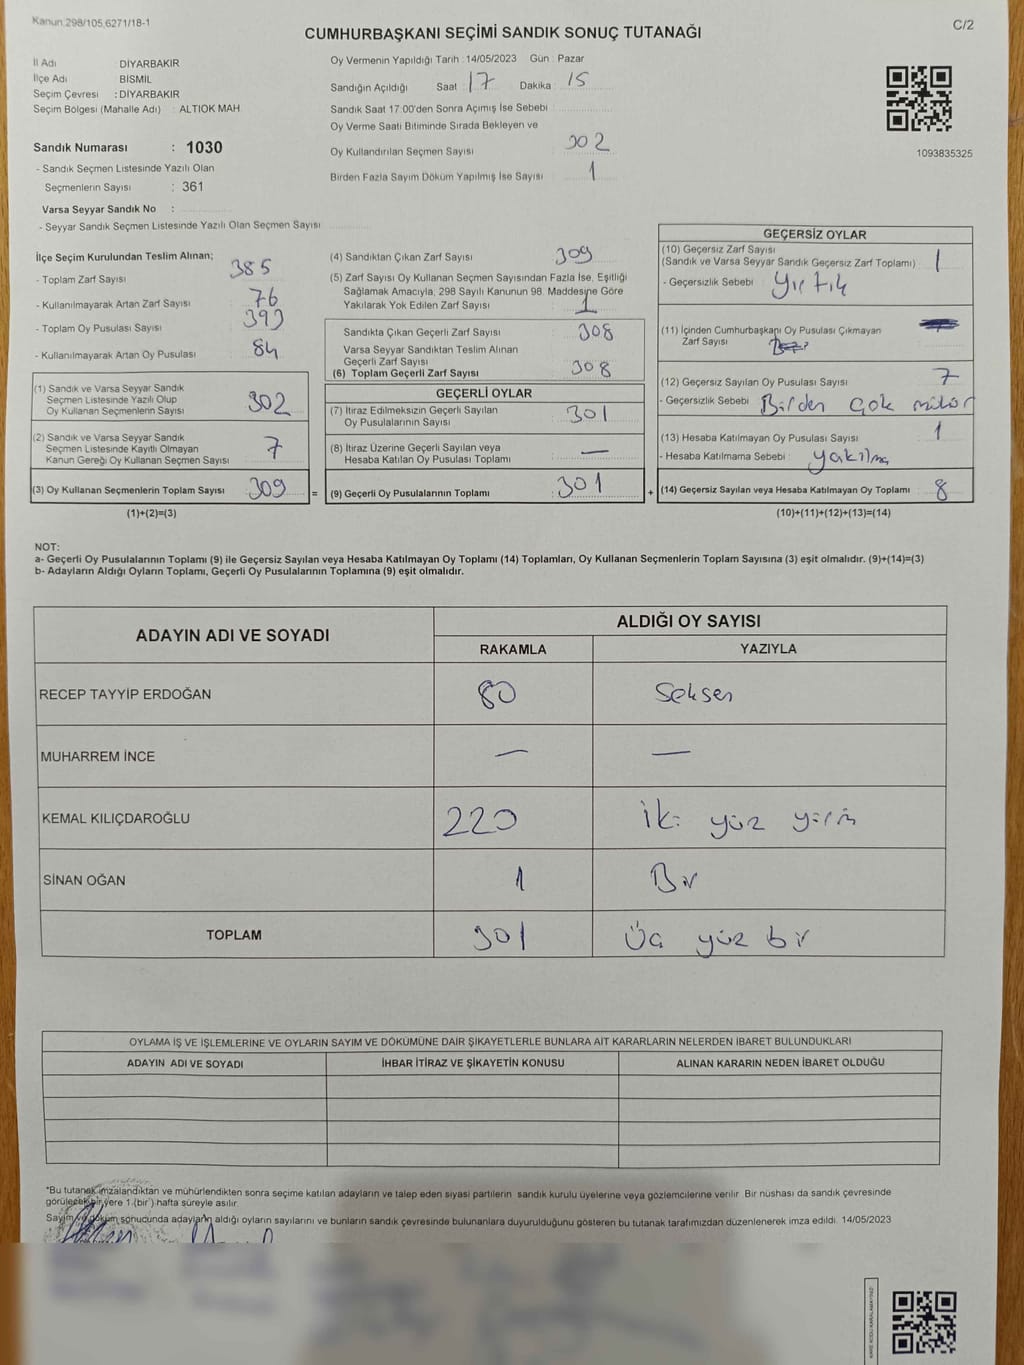 Kanun 298/105,6271/18-1
C/2
CUMHURBAŞKANI SEÇİMİ SANDIK SONUÇ TUTANAĞI
İl Adı DİYARBAKIR
İlçe Adı BİSMİL
Seçim Çevresi : DİYARBAKIR
Seçim Bölgesi (Mahalle Adı) : ALTIOK MAH
Sandık Numarası : 1030
- Sandık Seçmen Listesinde Yazılı Olan
Seçmenlerin Sayısı : 361
Varsa Seyyar Sandık No :
- Seyyar Sandık Seçmen Listesinde Yazılı Olan Seçmen Sayısı
Oy Vermenin Yapıldığı Tarih : 14/05/2023 Gün : Pazar
Sandığın Açıldığı Saat 17 Dakika 15
Sandık Saat 17:00'den Sonra Açımış İse Sebebi
Oy Verme Saati Bitiminde Sırada Bekleyen ve
Oy Kullandırılan Seçmen Sayısı 302
Birden Fazla Sayım Döküm Yapılmış İse Sayısı 1
1093835325
İlçe Seçim Kurulundan Teslim Alınan;
- Toplam Zarf Sayısı 385
- Kullanılmayarak Artan Zarf Sayısı 76
- Toplam Oy Pusulası Sayısı 393
- Kullanılmayarak Artan Oy Pusulası 84
(1) Sandık ve Varsa Seyyar Sandık
Seçmen Listesinde Yazılı Olup
Oy Kullanan Seçmenlerin Sayısı 302
(2) Sandık ve Varsa Seyyar Sandık
Seçmen Listesinde Kayıtlı Olmayan
Kanun Gereği Oy Kullanan Seçmen Sayısı 7
(3) Oy Kullanan Seçmenlerin Toplam Sayısı 309 =
(1)+(2)=(3)
(4) Sandıktan Çıkan Zarf Sayısı 309
(5) Zarf Sayısı Oy Kullanan Seçmen Sayısından Fazla İse, Eşitliği
Sağlamak Amacıyla, 298 Sayılı Kanunun 98. Maddesine Göre
Yakılarak Yok Edilen Zarf Sayısı 1
Sandıkta Çıkan Geçerli Zarf Sayısı 308
Varsa Seyyar Sandıktan Teslim Alınan
Geçerli Zarf Sayısı
(6) Toplam Geçerli Zarf Sayısı 308
GEÇERLİ OYLAR
(7) İtiraz Edilmeksizin Geçerli Sayılan
Oy Pusulalarının Sayısı 301
(8) İtiraz Üzerine Geçerli Sayılan veya
Hesaba Katılan Oy Pusulası Toplamı —
(9) Geçerli Oy Pusulalarının Toplamı : 301 +
GEÇERSİZ OYLAR
(10) Geçersiz Zarf Sayısı
(Sandık ve Varsa Seyyar Sandık Geçersiz Zarf Toplamı) 1
- Geçersizlik Sebebi : Yırtık
(11) İçinden Cumhurbaşkanı Oy Pusulası Çıkmayan
Zarf Sayısı
(12) Geçersiz Sayılan Oy Pusulası Sayısı 7
- Geçersizlik Sebebi Birden çok mühür
(13) Hesaba Katılmayan Oy Pusulası Sayısı 1
- Hesaba Katılmama Sebebi : yakılma
(14) Geçersiz Sayılan veya Hesaba Katılmayan Oy Toplamı 8
(10)+(11)+(12)+(13)=(14)
NOT:
a- Geçerli Oy Pusulalarının Toplamı (9) ile Geçersiz Sayılan veya Hesaba Katılmayan Oy Toplamı (14) Toplamları, Oy Kullanan Seçmenlerin Toplam Sayısına (3) eşit olmalıdır. (9)+(14)=(3)
b- Adayların Aldığı Oyların Toplamı, Geçerli Oy Pusulalarının Toplamına (9) eşit olmalıdır.
ADAYIN ADI VE SOYADI
ALDIĞI OY SAYISI
RAKAMLA YAZIYLA
RECEP TAYYİP ERDOĞAN 80 Seksen
MUHARREM İNCE — —
KEMAL KILIÇDAROĞLU 220 İki yüz yirmi
SİNAN OĞAN 1 Bir
TOPLAM 301 Üç yüz bir
OYLAMA İŞ VE İŞLEMLERİNE VE OYLARIN SAYIM VE DÖKÜMÜNE DAİR ŞİKAYETLERLE BUNLARA AİT KARARLARIN NELERDEN İBARET BULUNDUKLARI
ADAYIN ADI VE SOYADI İHBAR İTİRAZ VE ŞİKAYETİN KONUSU ALINAN KARARIN NEDEN İBARET OLDUĞU
*Bu tutanak imzalandıktan ve mühürlendikten sonra seçime katılan adayların ve talep eden siyasi partilerin sandık kurulu üyelerine veya gözlemcilerine verilir. Bir nüshası da sandık çevresinde
görülecek bir yere 1 (bir) hafta süreyle asılır.
Sayım ve döküm sonucunda adayların aldığı oyların sayılarını ve bunların sandık çevresinde bulunanlara duyurulduğunu gösteren bu tutanak tarafımızdan düzenlenerek imza edildi. 14/05/2023